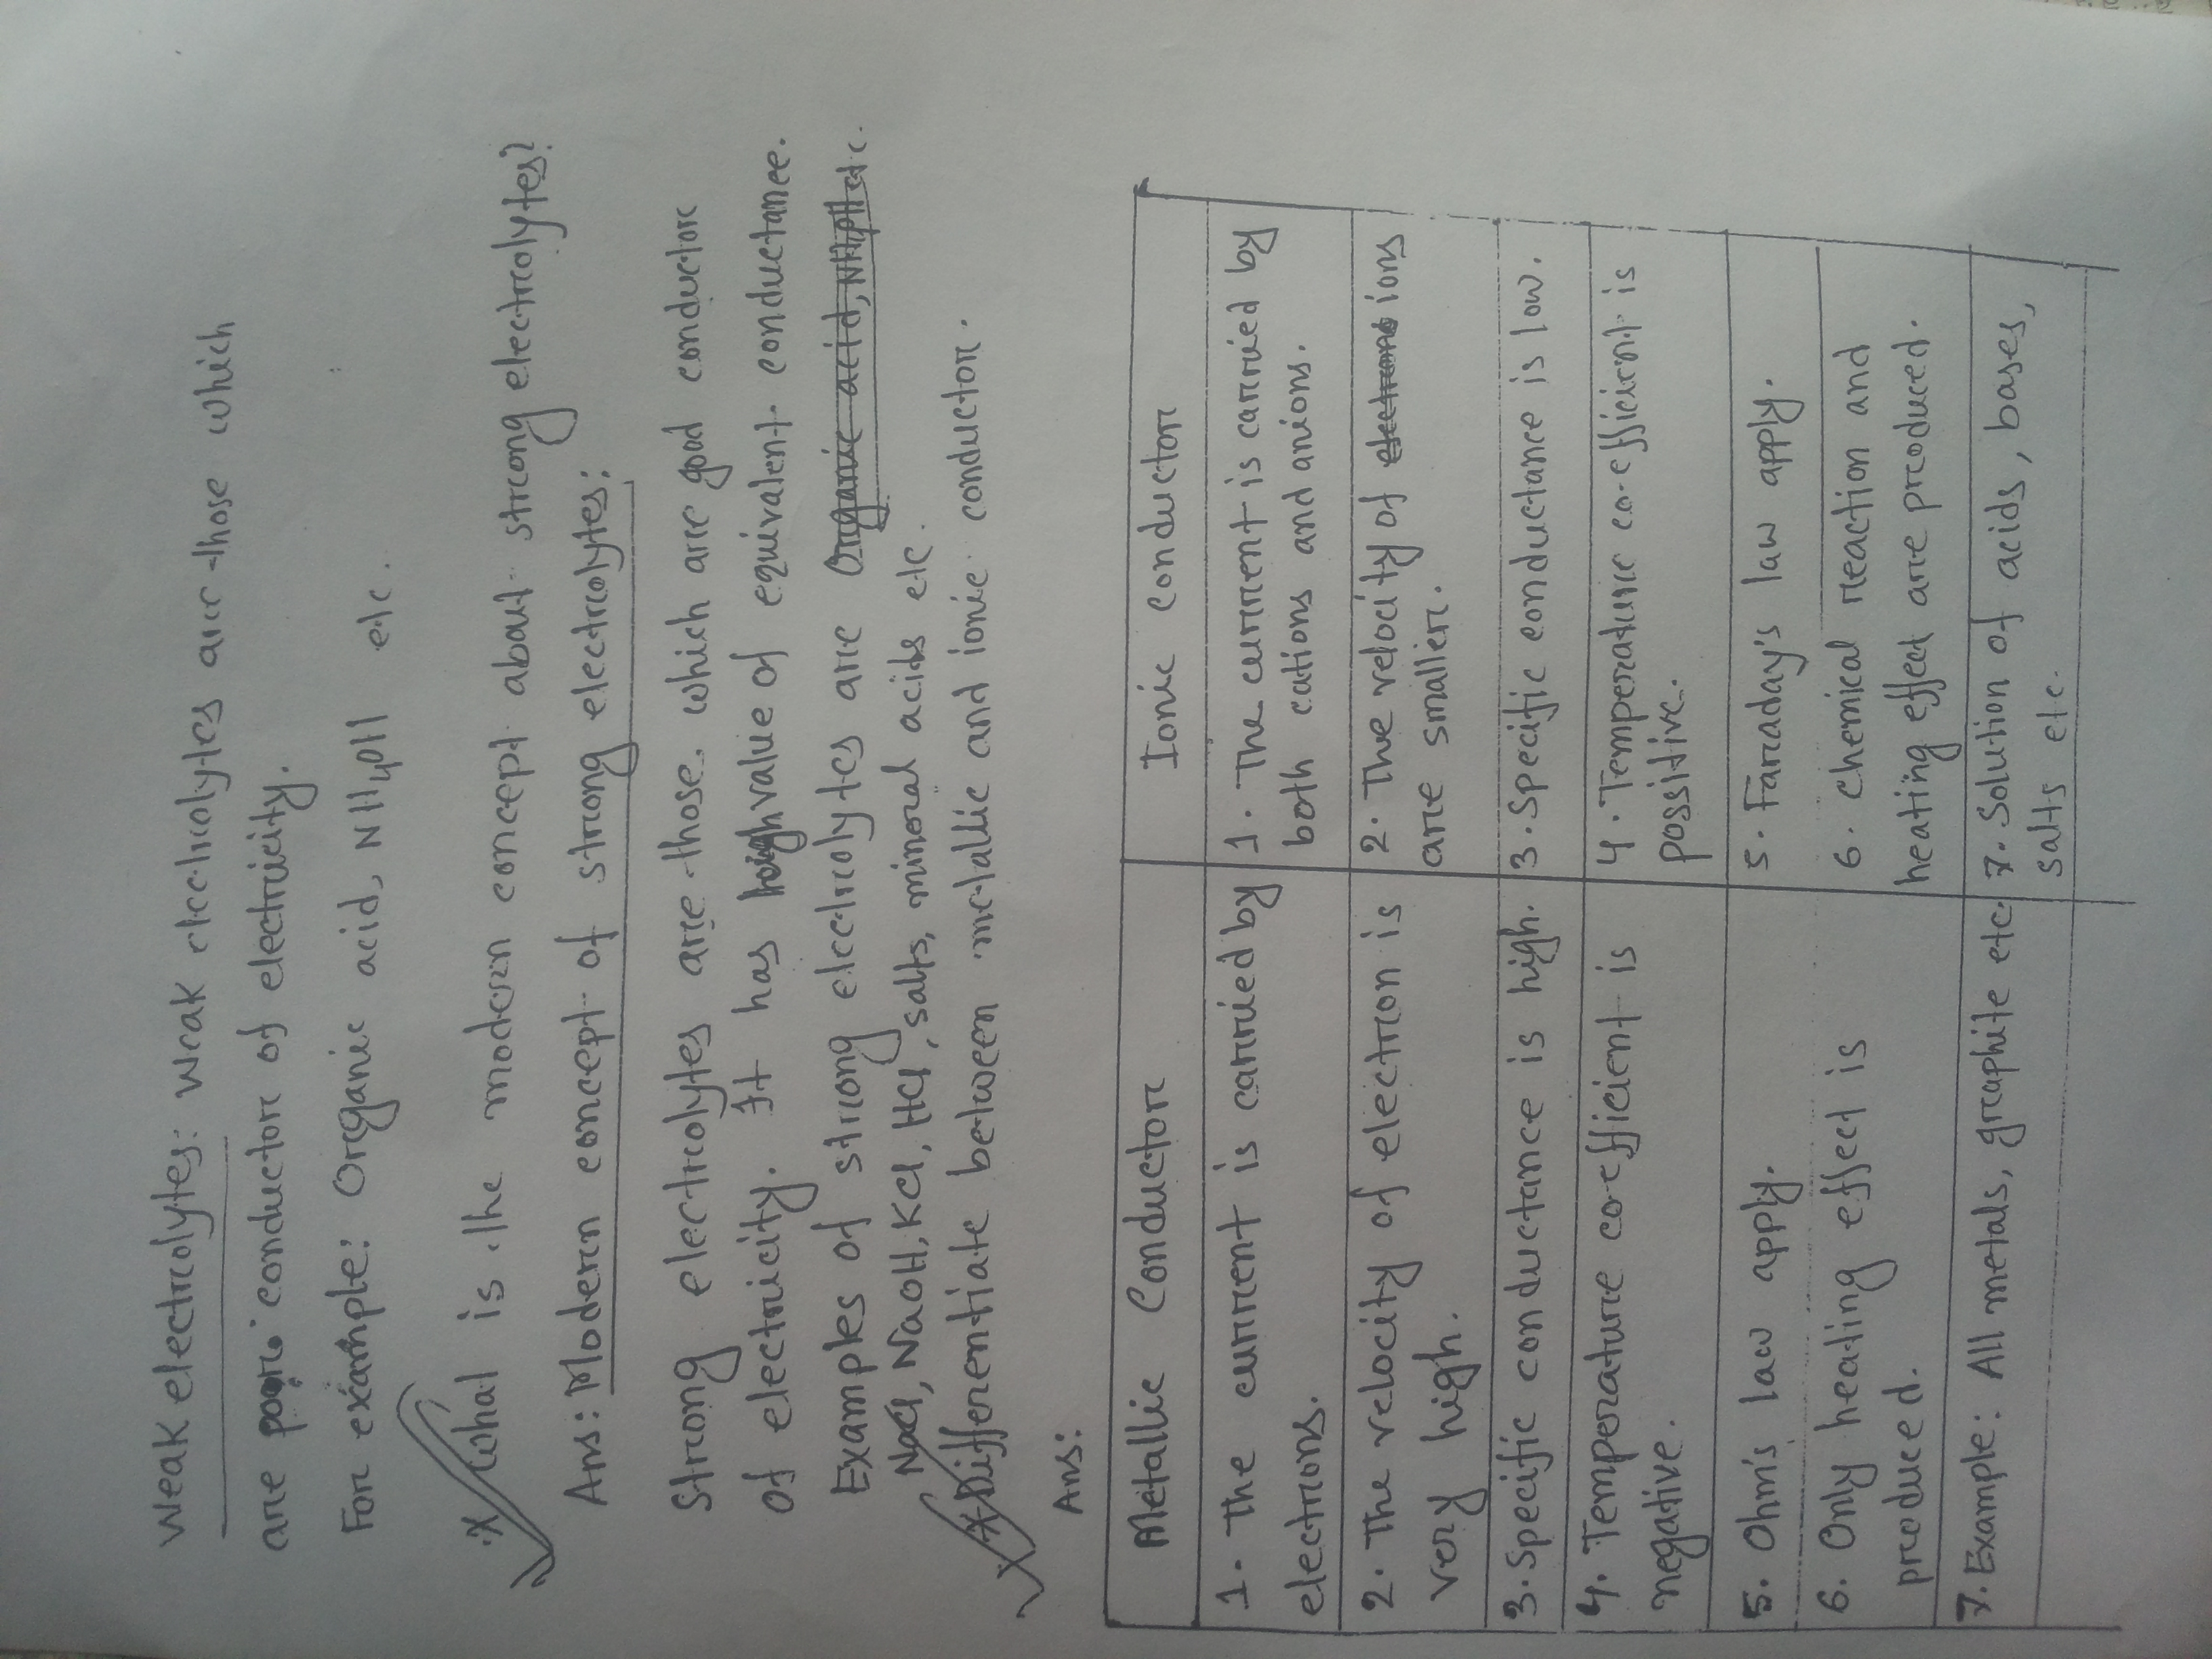 Weak electrolytes: Weak electrolytes are those which
are poor conductor of electricity.
For example: Organic acid, NH4OH etc.
* What is the modern concept about strong electrolytes?
Ans: Modern concept of strong electrolytes:
Strong electrolytes are those which are good conductor
of electricity. It has high value of equivalent conductance.
Examples of strong electrolytes are Organic acid, NH4OH etc.
NaCl, NaOH, KCl, HCl, salts, mineral acids etc.
* Differentiate between metallic and ionic conductor.
Ans:
Metallic Conductor
Ionic conductor
1. The current is carried by
electrons.
1. The current is carried by
both cations and anions.
2. The velocity of electron is
very high.
2. The velocity of electrons ions
are smaller.
3. Specific conductance is high.
3. Specific conductance is low.
4. Temperature co-efficient is
negative.
4. Temperature co-efficient is
possitive.
5. Ohm's law apply.
5. Faraday's law apply.
6. Only heating effect is
produced.
6. chemical reaction and
heating effect are produced.
7. Example: All metals, graphite etc.
7. Solution of acids, bases,
salts etc.